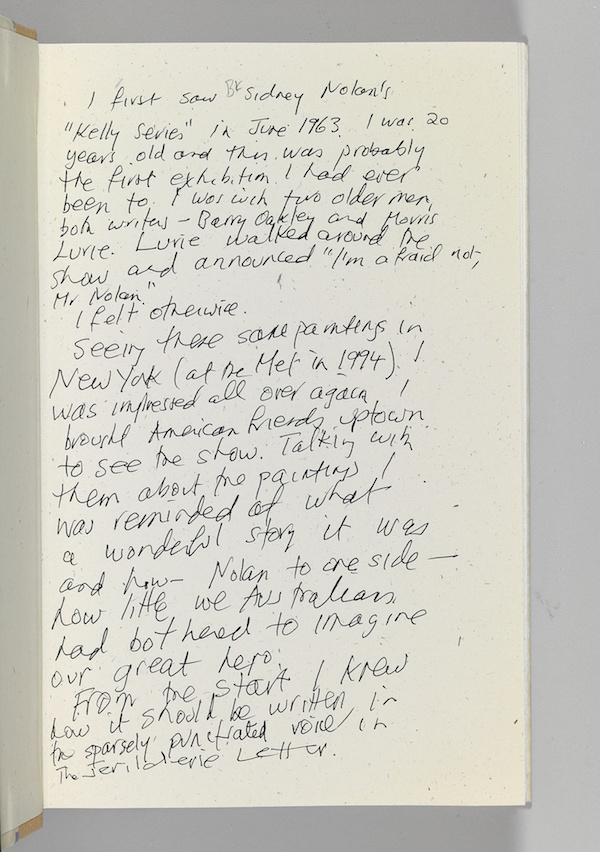 I first saw BK Sidney Nolan's
"Kelly Series" in June 1963. I was 20
years old and this was probably
the first exhibition I had ever
been to. I was with two older men,
both writers – Barry Oakley and Morris
Lurie. Lurie walked around the
show and announced "I'm afraid not,
Mr Nolan."
I felt otherwise.
Seeing these same paintings in
New York (at the Met in 1994) I
was impressed all over again. I
brought American friends uptown
to see the show. Talking with
them about the paintings I
was reminded of what
a wonderful story it was
and how – Nolan to one side –
how little we Australians
had bothered to imagine
our great hero.
From the start I knew
how it should be written in
the sparsely punctuated voice in
The Jerilderie Letter.